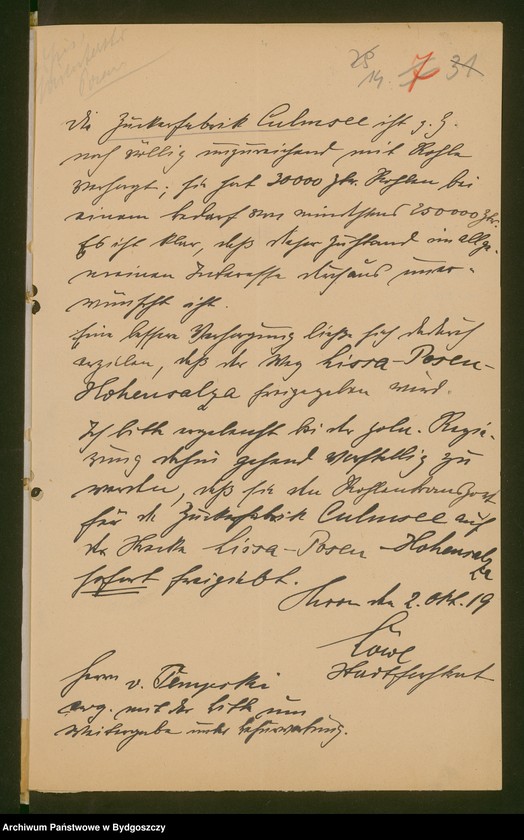 28
14. 7 31
Die Zuckerfabrik Culmsee ist z. Z.
noch völlig unzureichend mit Kohle
versorgt; sie hat 30000 Ztr. Kohlen bei
einem Bedarf von mindestens 250000 Ztr.
Es ist klar, daß dieser Zustand im allge-
meinen Interesse durchaus uner-
wünscht ist.
Eine bessere Versorgung ließe sich dadurch
erzielen, daß der Weg Lissa-Posen-
Hohensalza freigegeben wird.
Ich bitte ergebenst bei der poln. Regie-
rung dahin gehend vorstellig zu
werden, daß sie den Kohlentransport
für die Zuckerfabrik Culmsee auf
der Strecke Lissa-Posen-Hohensalza
sofort freigiebt.
Thorn den 2. Okt. 19
Löwe
Herrn v.
erg. mit der Bitte um
Weitergabe unter Befürwortung.
Archiwum Państwowe w Bydgoszczy